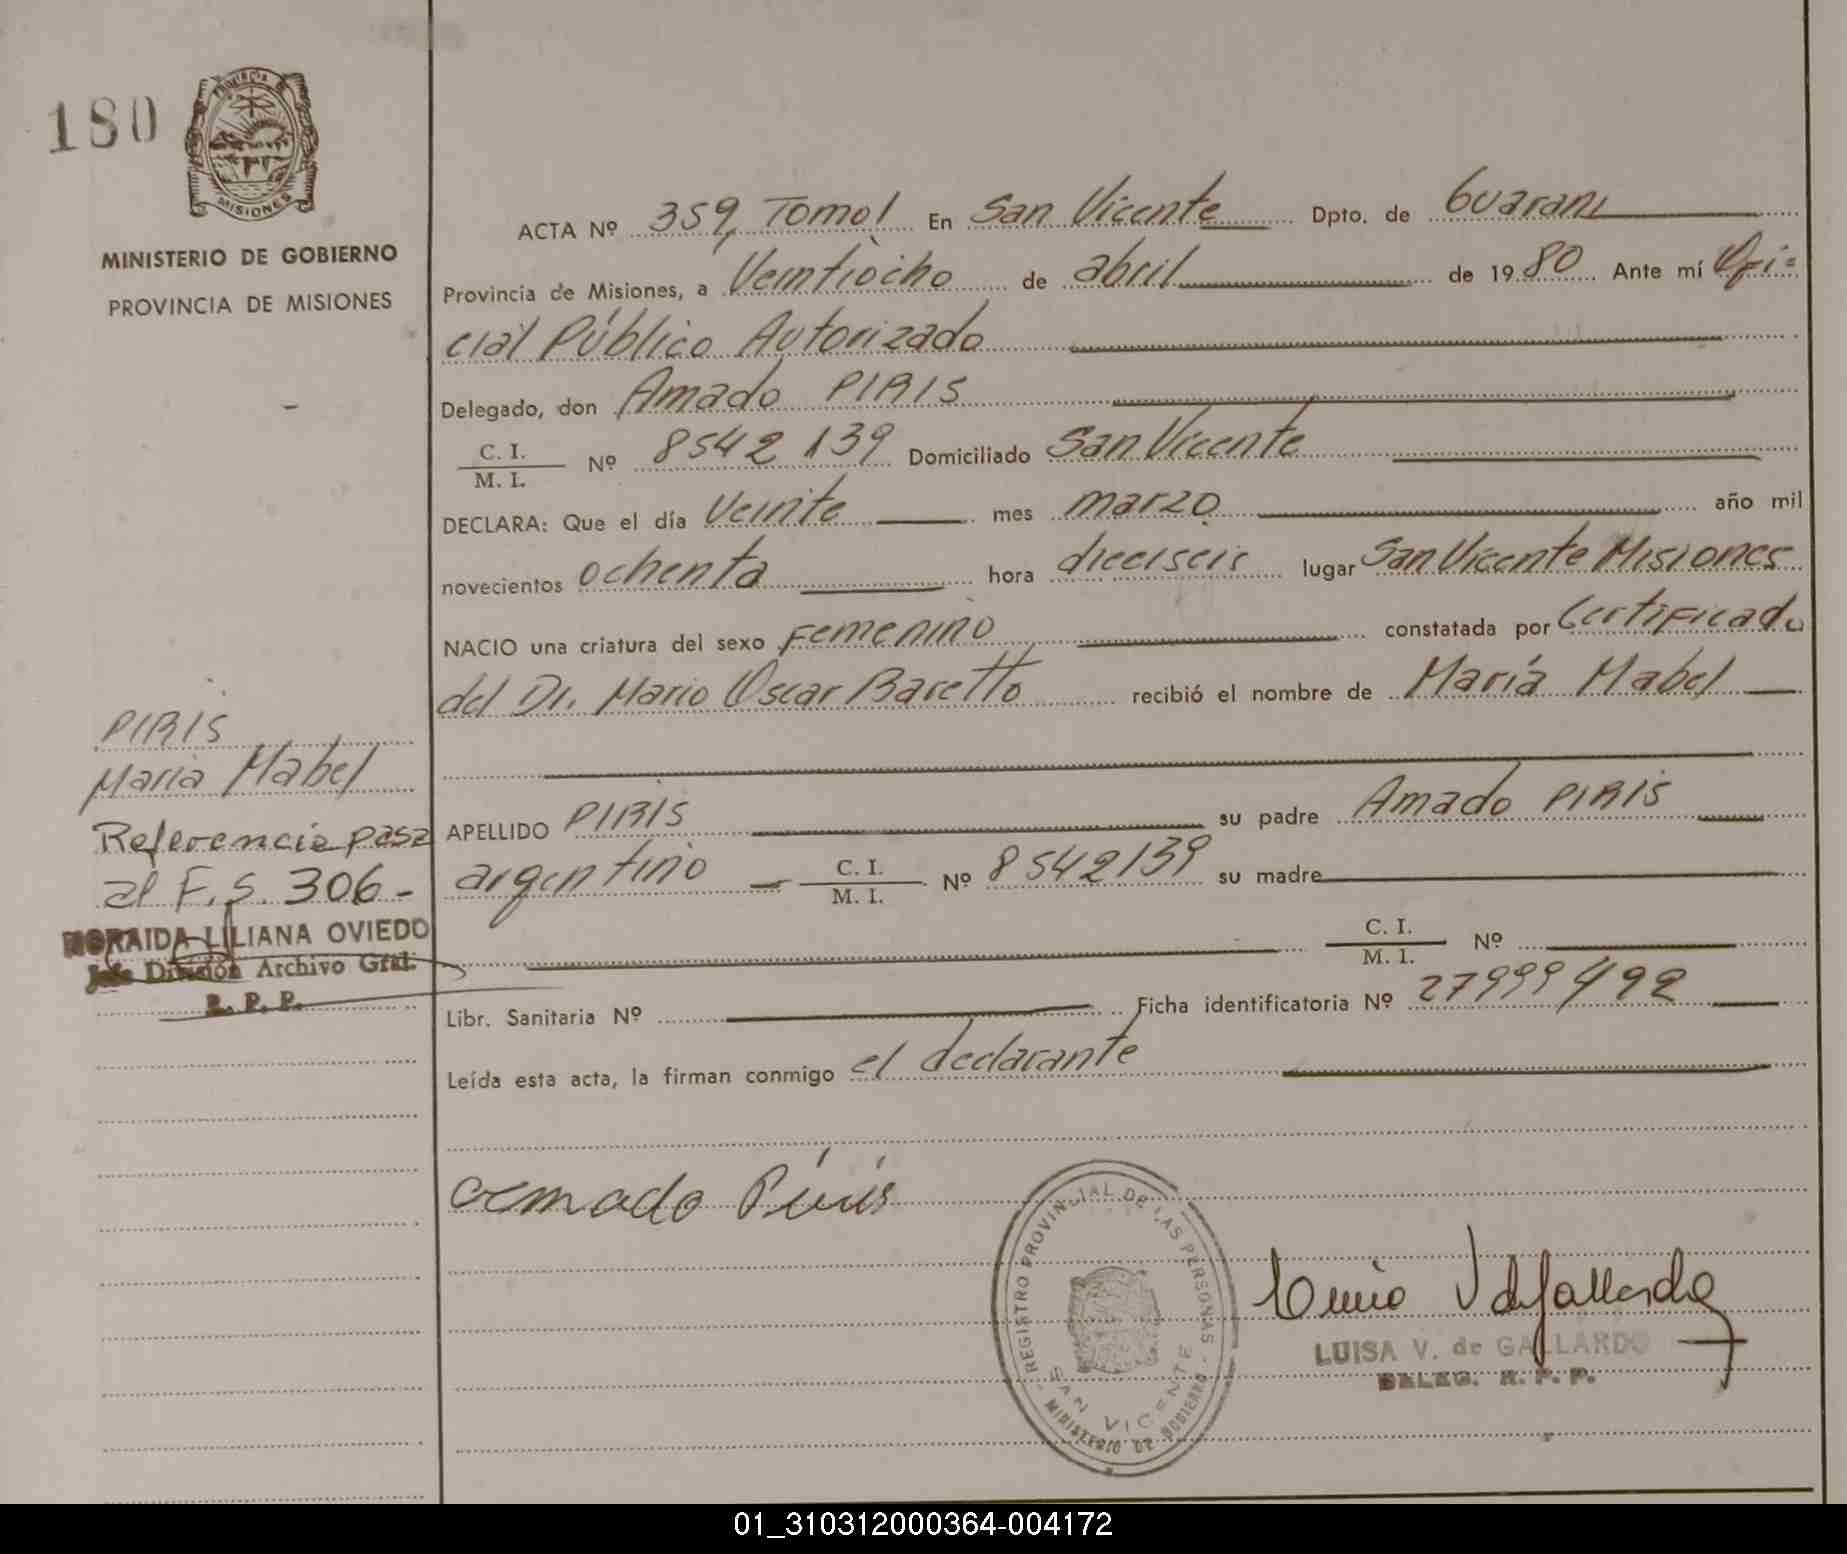 180
PROVINCIA
MISIONES
MINISTERIO DE GOBIERNO
PROVINCIA DE MISIONES
ACTA Nº 359, Tomo I En San Vicente Dpto. de Guaraní
Provincia de Misiones, a Veintiocho de abril de 1980 Ante mí Ofi=
cial Público Autorizado
Delegado, don Amado PIRIS
C. I.
M. I. Nº 8542139 Domiciliado San Vicente
DECLARA: Que el día Veinte mes marzo año mil
novecientos ochenta hora dieciseis lugar San Vicente Misiones
NACIO una criatura del sexo Femenino constatada por Certificado
del Dr. Mario Oscar Baretto recibió el nombre de María Mabel
APELLIDO PIRIS su padre Amado PIRIS
argentino C. I. M. I. Nº 8542139 su madre
C. I. M. I. Nº
Libr. Sanitaria Nº Ficha identificatoria Nº 27999492
Leída esta acta, la firman conmigo el declarante
PIRIS
María Mabel
Referencia pasa
al F.S. 306-
NORAIDA LILIANA OVIEDO
Jefe División Archivo Gral.
R. P. P.
Amado Piris
REGISTRO PROVINCIAL DE LAS PERSONAS
SAN VICENTE
MINISTERIO DE GOBIERNO
Luisa V de Gallardo
LUISA V. de GALLARDO
DELEG. R. P. P.
01_310312000364-004172